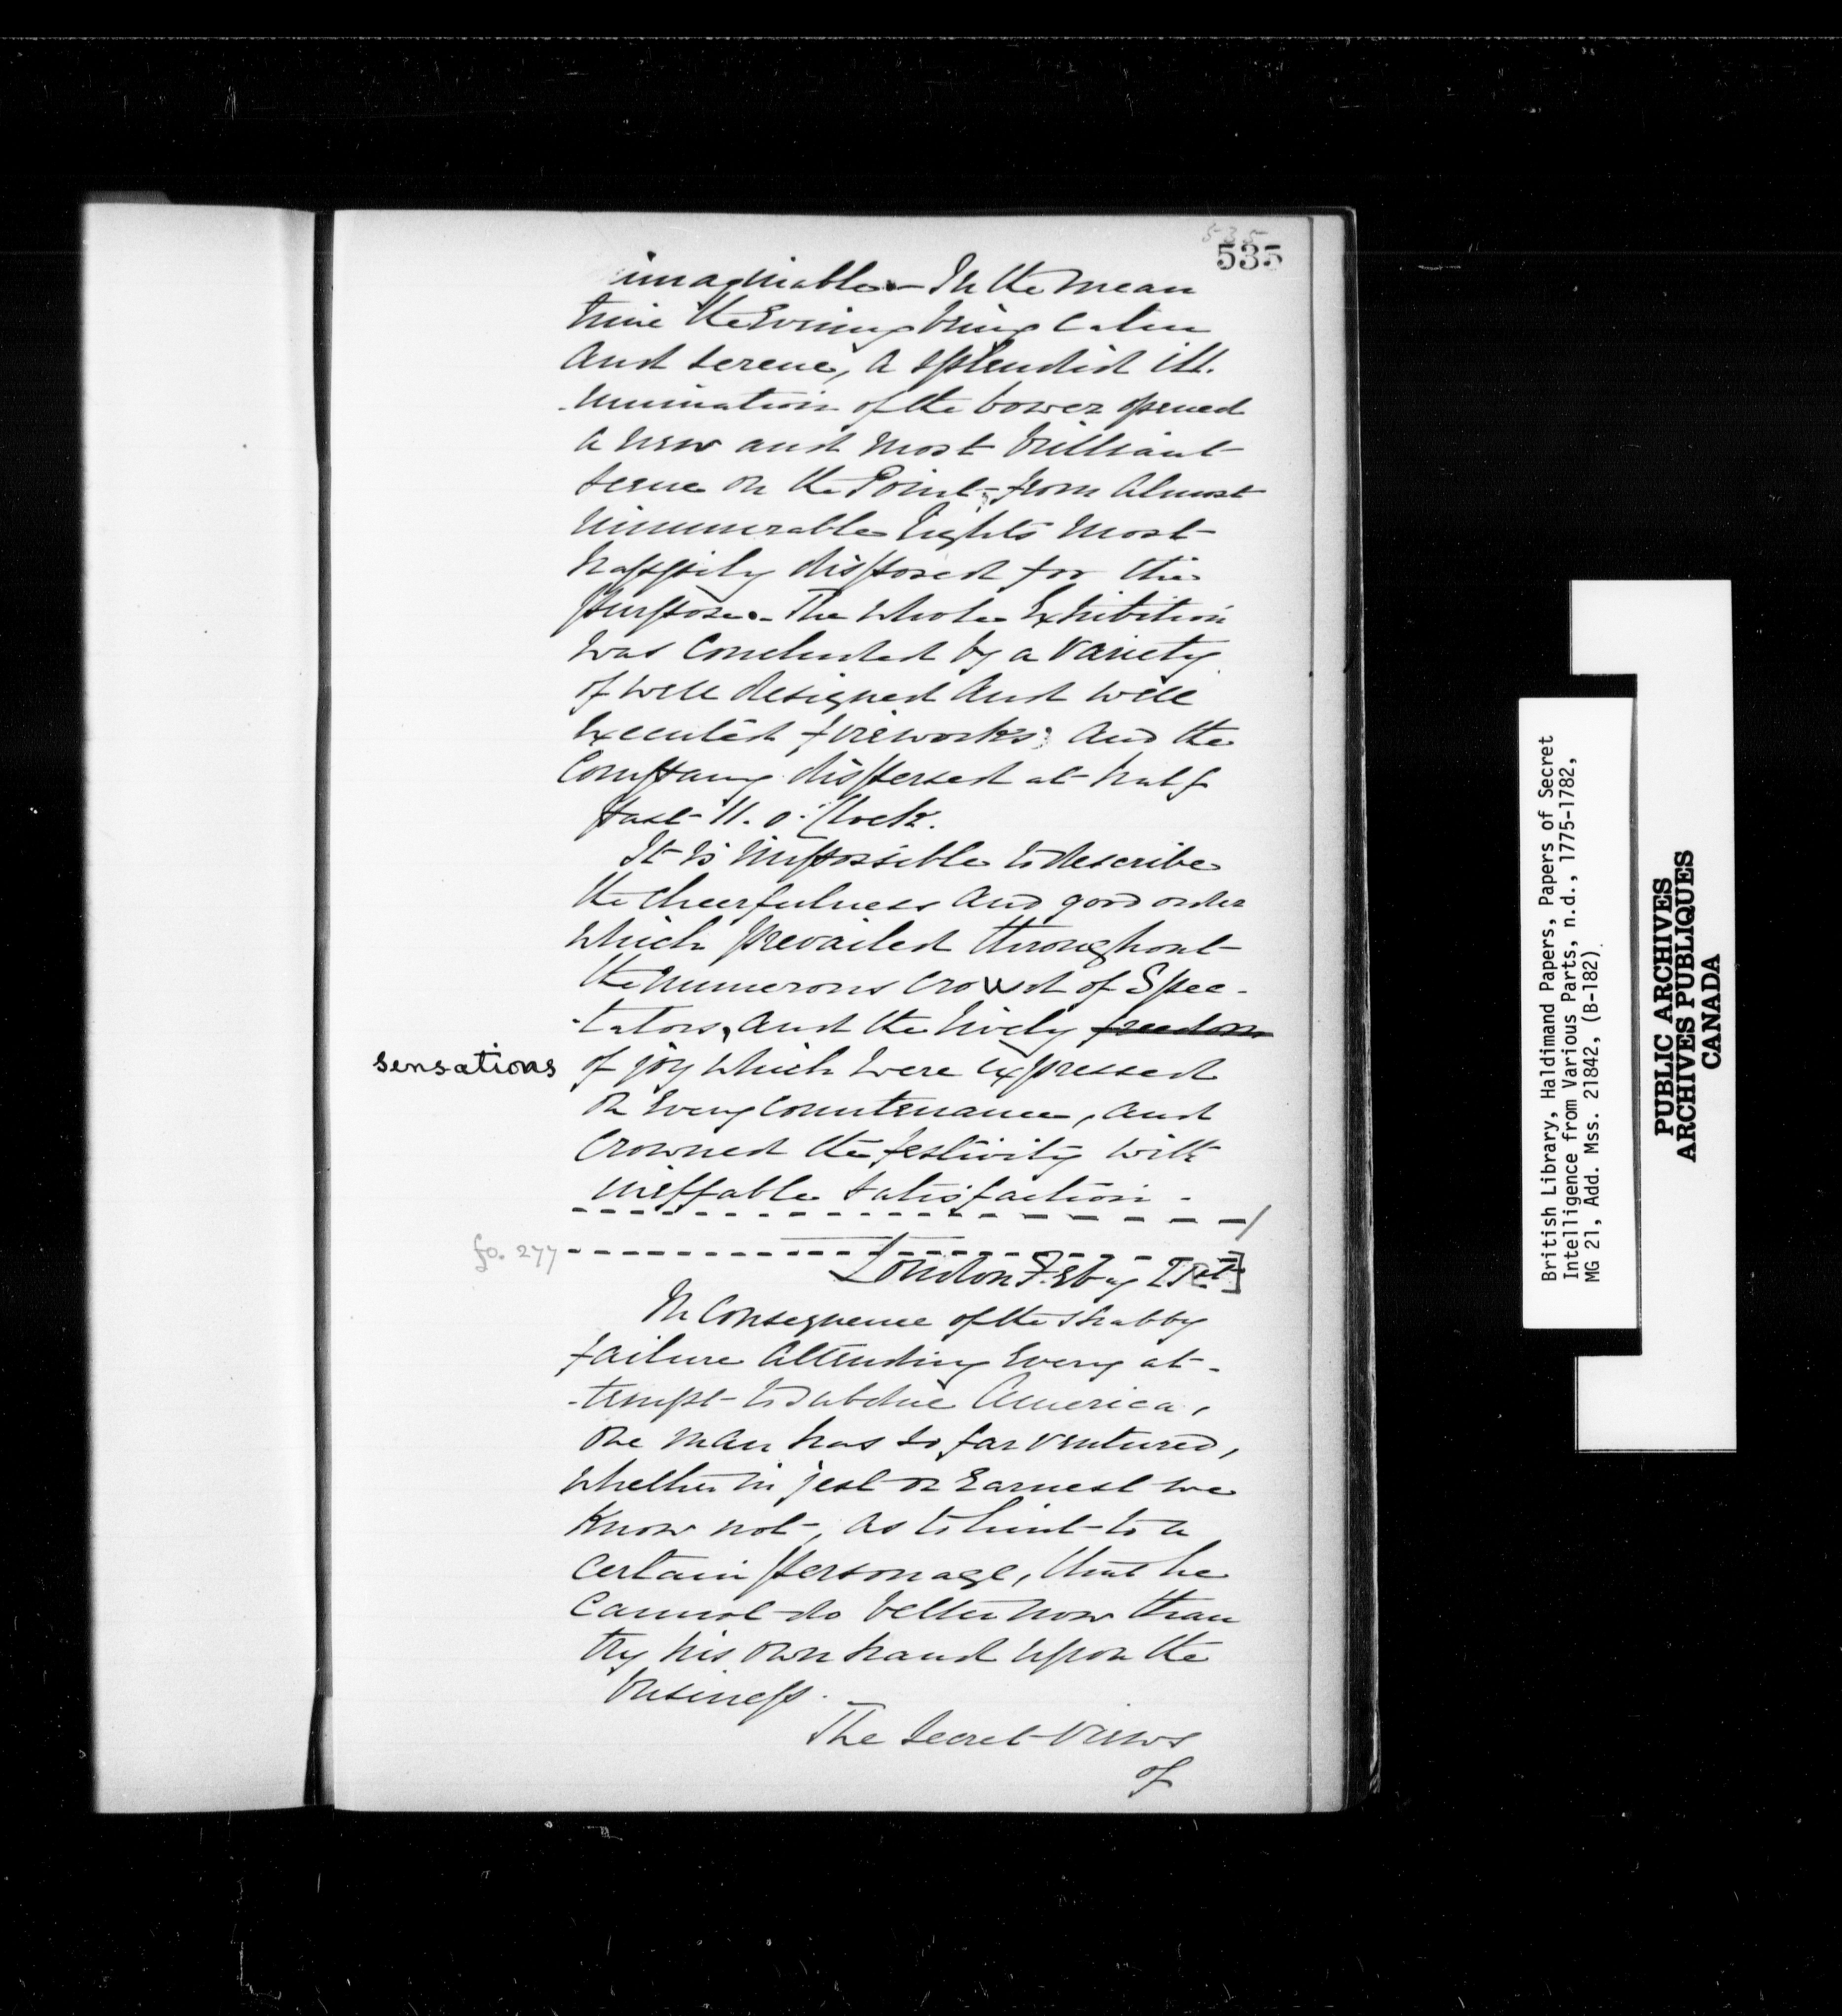 535
535
imaginable.- In the mean
time the Evening being calm
and serene, a splendid ill.
-umination of the bower opened
a new and most brilliant
scene on the Point, from almost
innumerable lights most
happily disposed for the
purpose. - The whole Exhibition
was concluded by a variety
of well designed and well
executed fireworks; and the
Company dispersed at half
past 11. o'Clock.
It is impossible to describe
the cheerfulness and good order
which prevailed throughout
the numerous crowd of Spec-
-tators, and the lively freedom
sensations of joy which were expressed
on every countenance, and
crowned the festivity with
ineffable satisfaction -
fo. 277
London Feby 21st]
In Consequence of the shabby
failure attending every at-
-tempt to subdue America,
one man has so far ventured,
whether in jest or Earnest we
know not, as to hint to a
certain personage, that he
cannot do better now than
try his own hand upon the
business.
The Secret views
of
British Library, Haldimand Papers, Papers of Secret
Intelligence from Various Parts, n.d., 1775-1782,
MG 21, Add. Mss. 21842, (B-182)
PUBLIC ARCHIVES
ARCHIVES PUBLIQUES
CANADA